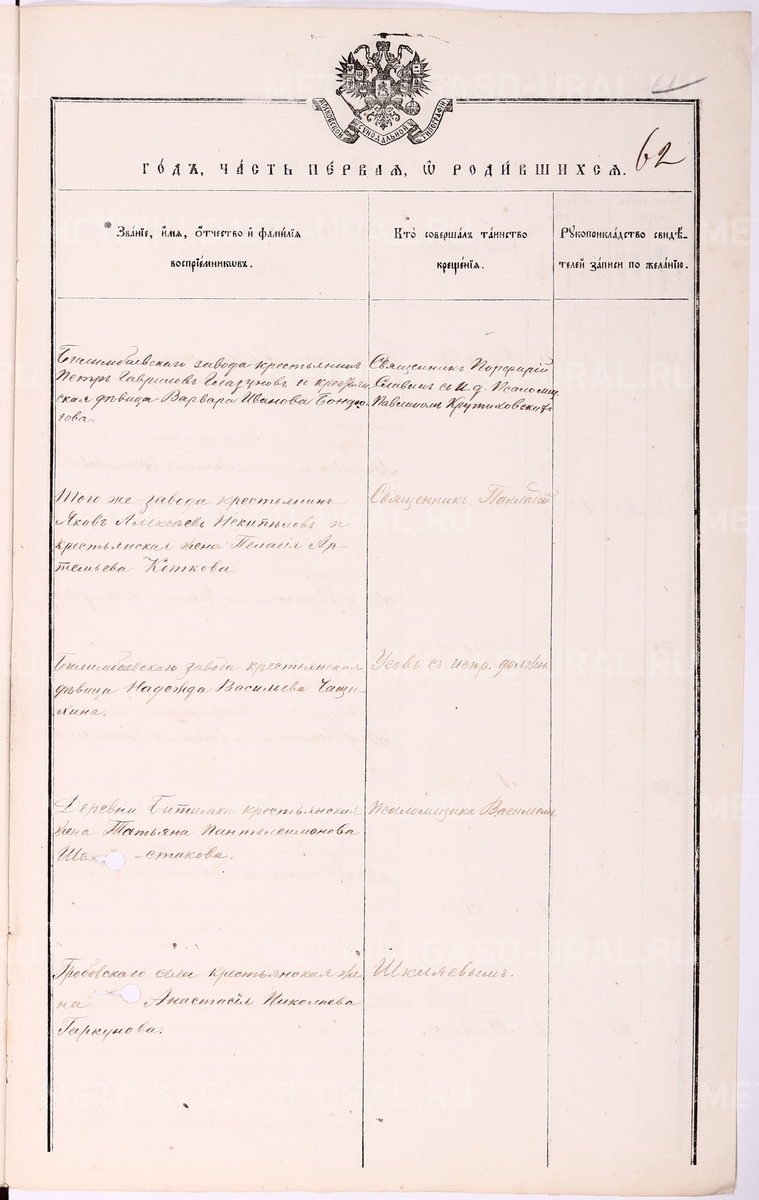 МОСКОВСКОЙ СѴНОДАЛЬНОЙ ТИПОГРАФІИ
62
ГО́ДЪ, ЧА́СТЬ ПЕ́РВАѦ, Ѡ҆ РОДИ́ВШИХСѦ.
Зва́нїе, и҆́мѧ, ѻ҆́тчество и҆ фами́лїѧ
воспрїе́мникѡвъ.
Кто̀ соверша́лъ та́инство
креще́нїѧ.
Рꙋкоприкла́дство свидѣ́-
телей за́писи по жела́нїю.
Билимбаевскаго завода крестьянинъ
Петръ Гавриловъ Глазуновъ и крестьян
ская дѣвица Варвара Иванова Бондю-
гова.
Священникъ Порфирій
Славинъ съ и. д. Псаломщ.
Павлиномъ Кружиховски
Того же завода крестьянинъ
Яковъ Алексѣевъ и
крестьянская жена Пелагія Ар-
темьева Коткова.
Священникъ Палладій
Билимбаевскаго завода крестьянская
дѣвица Надежда Васильева Чащи-
хина.
Усовъ съ испр. должн.
Деревни Битимки крестьянская
жена Татьяна Пантелеимонова
Ше -стакова.
Псаломщика Василіемъ
Гробовскаго села крестьянская же
на Анастасія Николаева
Гаркунова.
Шкляевымъ.
METRIKI.GASO-URAL.RU